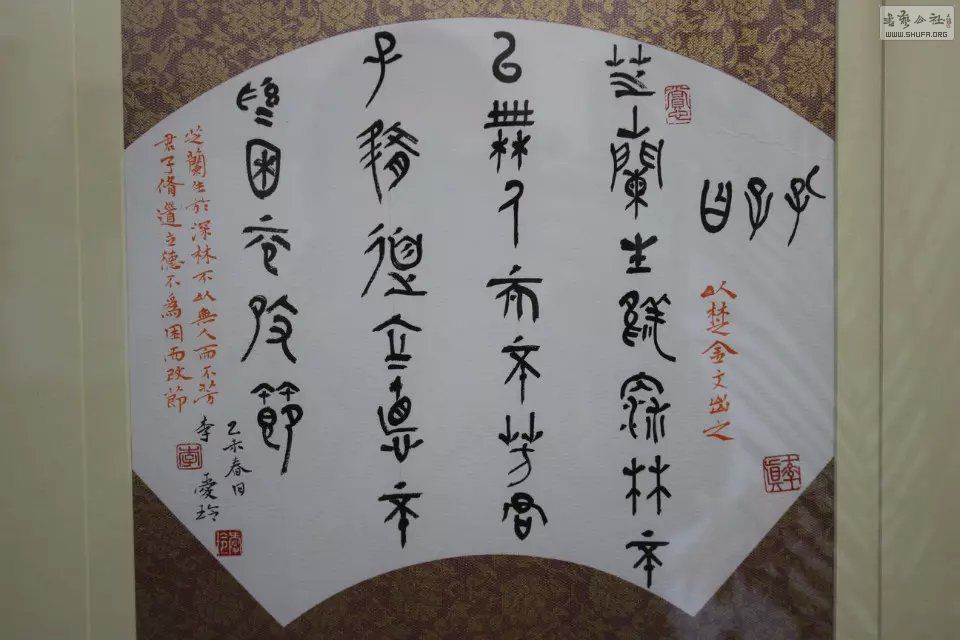 孔子曰
以楚金文出之
芝蘭生於深林不
以無人而不芳君
子脩道立德不
爲困而改節
芝蘭生於深林不以無人而不芳
君子脩道立德不爲困而改節
乙未春日
李愛玲
李
書藝公社
WWW.SHUFA.ORG